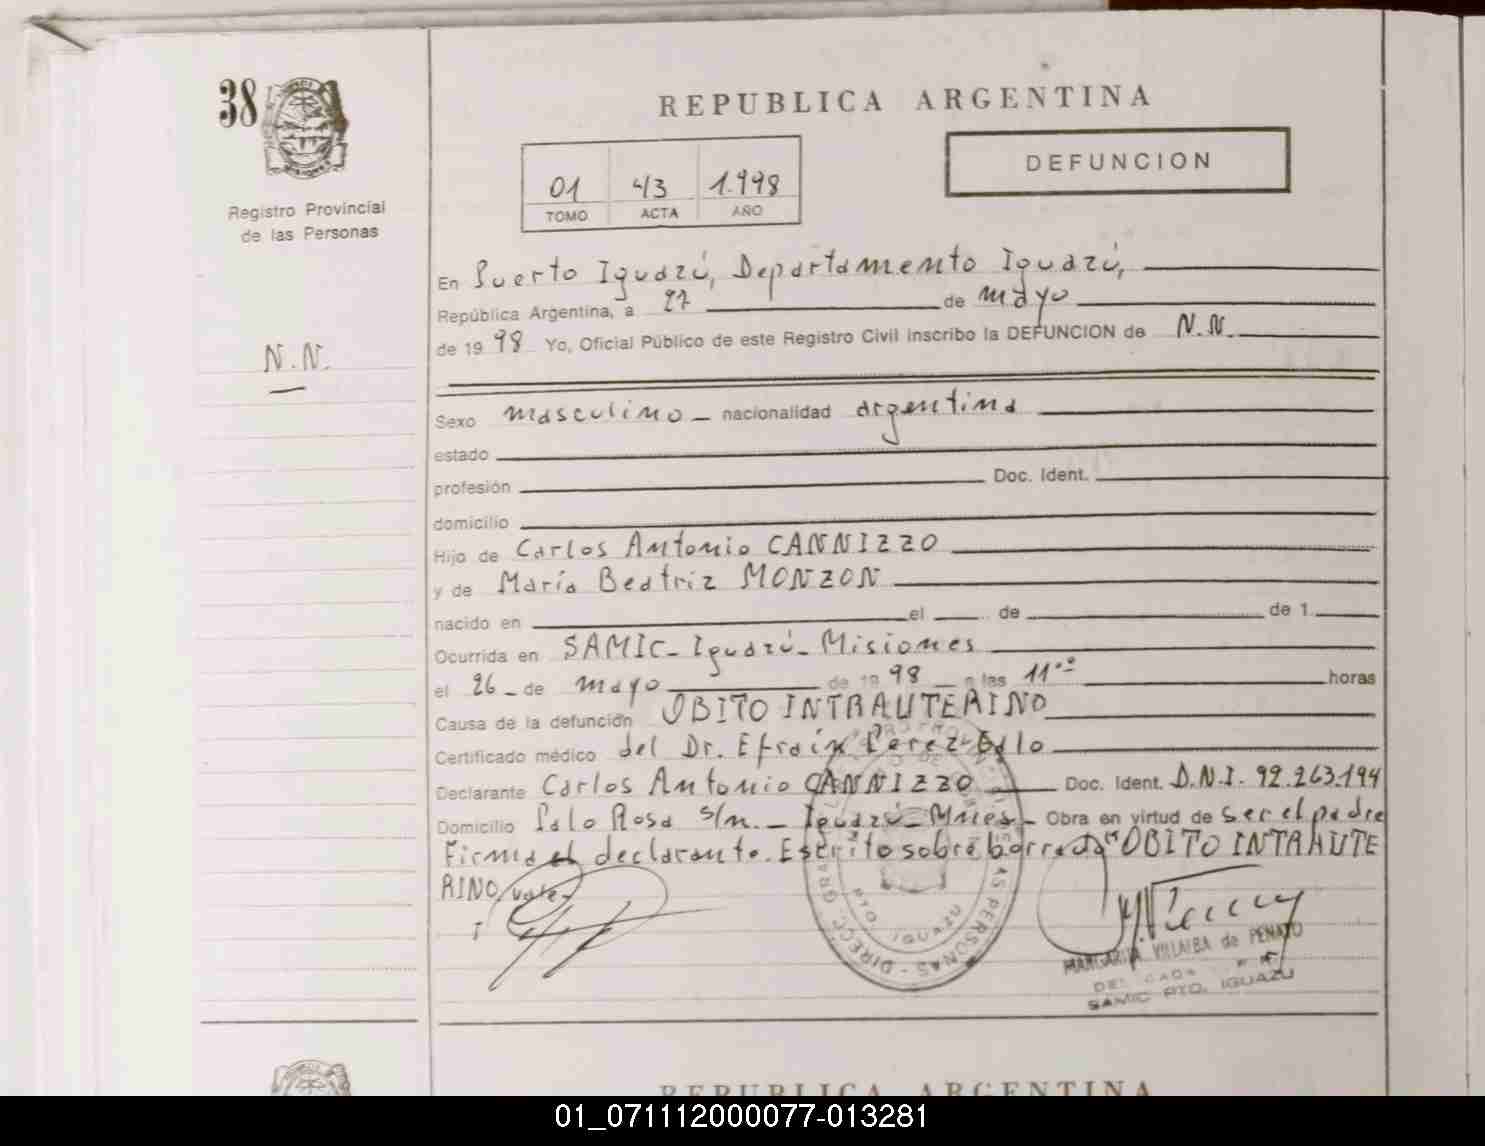 38
REPUBLICA ARGENTINA
DEFUNCION
01 43 1.998
TOMO ACTA AÑO
Registro Provincial
de las Personas
N.N.
En Puerto Iguazú, Departamento Iguazú,
República Argentina, a 27 de mayo
de 1998 Yo, Oficial Público de este Registro Civil inscribo la DEFUNCION de N.N.
Sexo masculino nacionalidad argentina
estado
profesión Doc. Ident.
domicilio
Hijo de Carlos Antonio CANNIZZO
y de María Beatriz MONZON
nacido en el de de 1
Ocurrida en SAMIC - Iguazú - Misiones
el 26 de mayo de 1998 a las 11.00 horas
Causa de la defunción OBITO INTRAUTERINO
Certificado médico del Dr. Efraín Perez
Declarante Carlos Antonio CANNIZZO Doc. Ident. D.N.I. 92.263.194
Domicilio Palo Rosa s/n. - Iguazú - Mnes - Obra en virtud de ser el padre
Firma el declarante. Escrito sobre borrado "OBITO INTRAUTE
RINO, vale.
DIRECC. GRAL. PERSONAS
PTO. IGUAZU
MARGARITA VILLALBA de PENAYO
SAMIC PTO. IGUAZU
REPUBLICA ARGENTINA
01_071112000077-013281